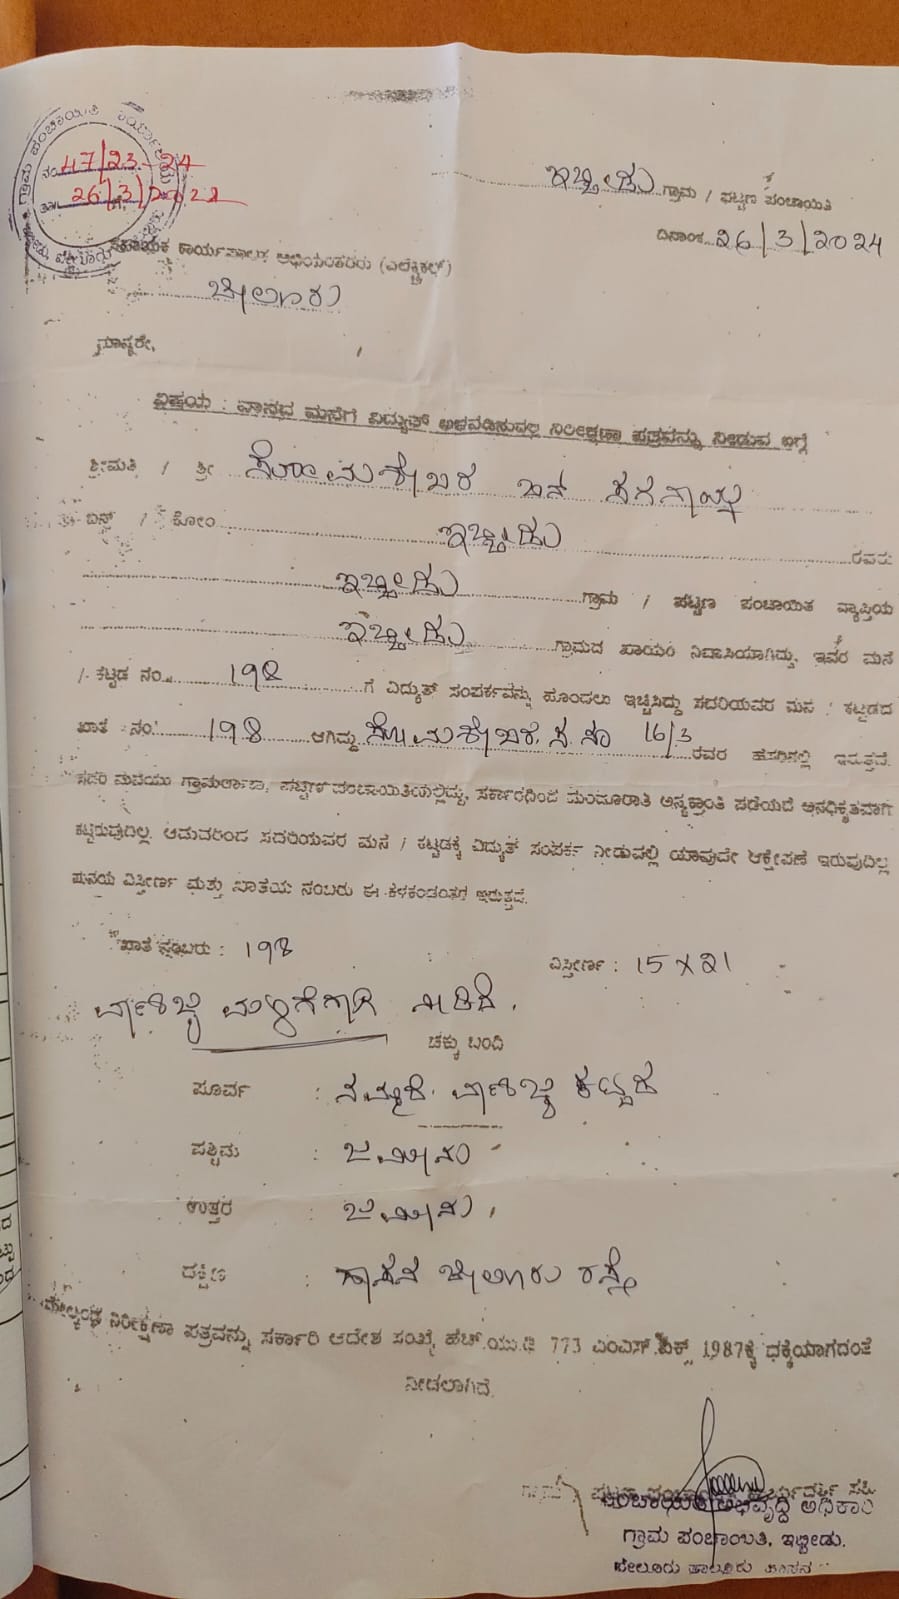 ಗ್ರಾಮ ಪಂಚಾಯಿತಿ ಕಾರ್ಯಾಲಯ
ನಂ. 47/23-24
26/3/2024
ಇಬ್ಬೀಡು ಗ್ರಾಮ / ಪಟ್ಟಣ ಪಂಚಾಯಿತಿ
ದಿನಾಂಕ 26/3/2024
ಸಹಾಯಕ ಕಾರ್ಯಪಾಲಕ ಅಭಿಯಂತರರು (ಎಲೆಕ್ಟ್ರಿಕಲ್)
ಬೇಲೂರು
ಮಾನ್ಯರೇ,
ವಿಷಯ : ವಾಸದ ಮನೆಗೆ ವಿದ್ಯುತ್ ಅಳವಡಿಸುವಲ್ಲಿ ನಿರೀಕ್ಷಣಾ ಪತ್ರವನ್ನು ನೀಡುವ ಬಗ್ಗೆ
ಶ್ರೀಮತಿ / ಶ್ರೀ ಸೋಮಶೇಖರ ಬಿನ್
ಬಿನ್ / ಕೋಂ ಇಬ್ಬೀಡು ರವರು
ಇಬ್ಬೀಡು ಗ್ರಾಮ / ಪಟ್ಟಣ ಪಂಚಾಯಿತ ವ್ಯಾಪ್ತಿಯ
ಇಬ್ಬೀಡು ಗ್ರಾಮದ ಖಾಯಂ ನಿವಾಸಿಯಾಗಿದ್ದು, ಇವರ ಮನೆ
/ ಕಟ್ಟಡ ನಂ. 198 ಗೆ ವಿದ್ಯುತ್ ಸಂಪರ್ಕವನ್ನು ಹೊಂದಲು ಇಚ್ಚಿಸಿದ್ದು ಸದರಿಯವರ ಮನೆ / ಕಟ್ಟಡದ
ಖಾತೆ ನಂ. 198 ಆಗಿದ್ದು ಸೋಮಶೇಖರ 16/3 ರವರ ಹೆಸರಿನಲ್ಲಿ ಇರುತ್ತದೆ.
ಸದರಿ ಮನೆಯು ಗ್ರಾಮಠಾಣಾ, ಪಟ್ಟಣ ಪಂಚಾಯಿತಿಯಲ್ಲಿದ್ದು, ಸರ್ಕಾರದಿಂದ ಮಂಜೂರಾತಿ ಅನ್ಯಕ್ರಾಂತಿ ಪಡೆಯದೆ ಅನಧಿಕೃತವಾಗಿ
ಕಟ್ಟಿರುವುದಿಲ್ಲ. ಆದುದರಿಂದ ಸದರಿಯವರ ಮನೆ / ಕಟ್ಟಡಕ್ಕೆ ವಿದ್ಯುತ್ ಸಂಪರ್ಕ ನೀಡುವಲ್ಲಿ ಯಾವುದೇ ಆಕ್ಷೇಪಣೆ ಇರುವುದಿಲ್ಲ
ಮನೆಯ ವಿಸ್ತೀರ್ಣ ಮತ್ತು ಖಾತೆಯ ನಂಬರು ಈ ಕೆಳಕಂಡಂತೆ ಇರುತ್ತದೆ.
ಖಾತೆ ನಂಬರು : 198 ವಿಸ್ತೀರ್ಣ : 15 X 21
ವಾಣಿಜ್ಯ ಮಳಿಗೆಗಾಗಿ ನೀಡಿದೆ.
ಚಕ್ಕು ಬಂದಿ
ಪೂರ್ವ : ವಾಣಿಜ್ಯ ಕಟ್ಟಡ
ಪಶ್ಚಿಮ : ಜಮೀನು
ಉತ್ತರ : ಜಮೀನು
ದಕ್ಷಿಣ : ಹಾಸನ ಬೇಲೂರು ರಸ್ತೆ
ಮೇಲ್ಕಂಡ ನಿರೀಕ್ಷಣಾ ಪತ್ರವನ್ನು ಸರ್ಕಾರಿ ಆದೇಶ ಸಂಖ್ಯೆ ಹೆಚ್.ಯು.ಡಿ 773 ಎಂಎನ್.ಎಕ್ಸ್ 1987ಕ್ಕೆ ಧಕ್ಕೆಯಾಗದಂತೆ
ನೀಡಲಾಗಿದೆ.
ಪಂಚಾಯಿತಿ ಅಭಿವೃದ್ಧಿ ಅಧಿಕಾರಿ
ಗ್ರಾಮ ಪಂಚಾಯಿತಿ, ಇಬ್ಬೀಡು.
ಬೇಲೂರು ತಾಲ್ಲೂಕು ಹಾಸನ